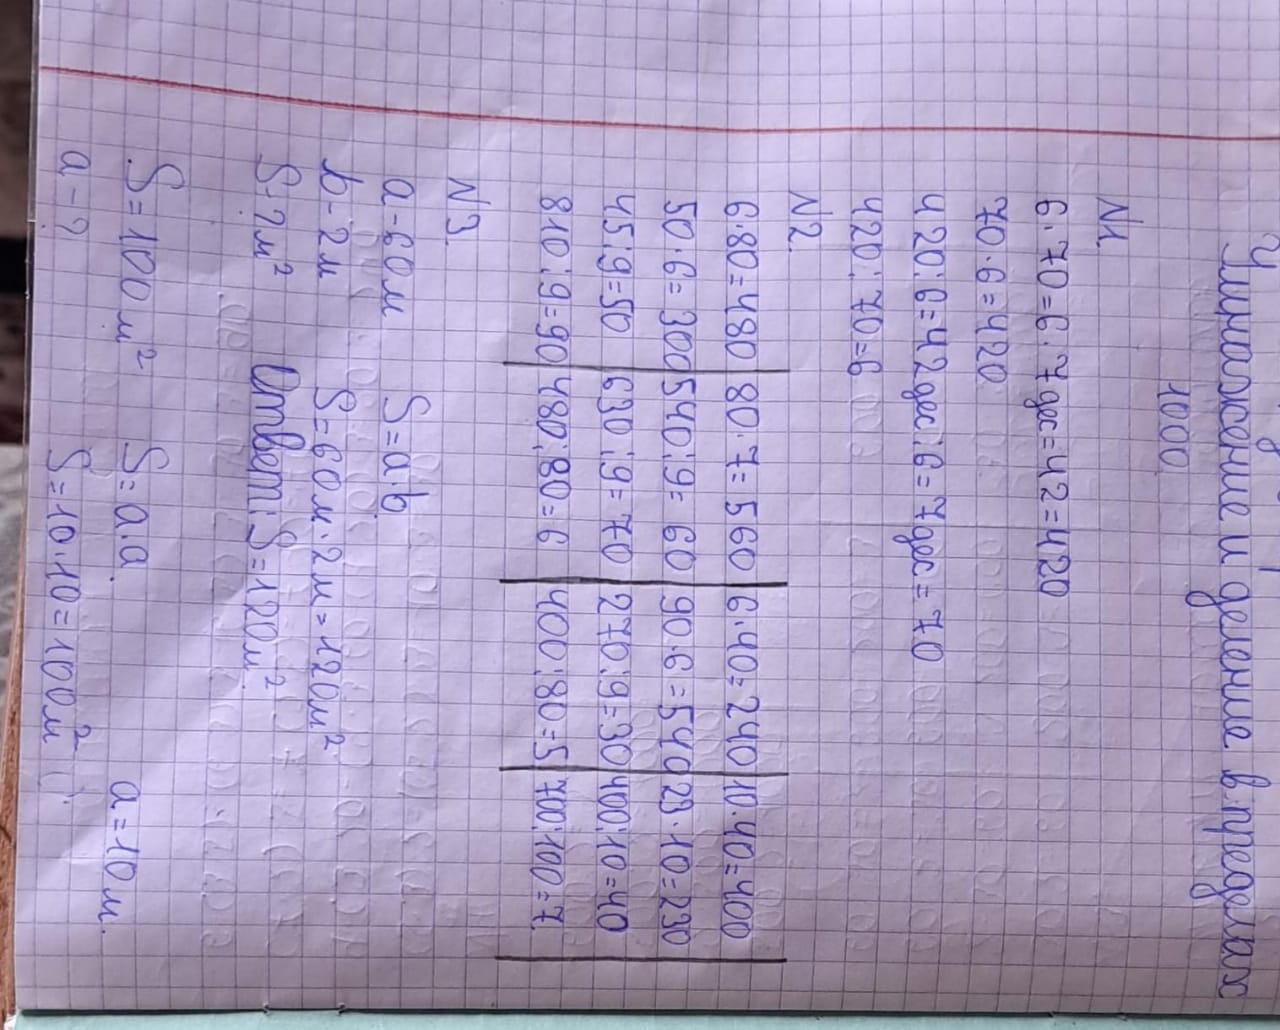 Умножение и деление в пределах
1000.
№1.
6·70=6·7дес=42=420
70·6=420
420:6=42дес:6=7дес=70
420:70=6
№2.
6·80=480 80·7=560 6·40=240 10·40=400
50·6=300 540:9=60 90·6=540 23·10=230
45:9=50 630:9=70 270:9=30 400:10=40
810:9=90 480:80=6 400:80=5 700:100=7.
№3.
a-60м S=a·b.
b-2м S=60м·2м=120м²
S-?м² Ответ: S=120м².
S=100м² S=a·a. a=10м.
a-? S=10·10=100м²